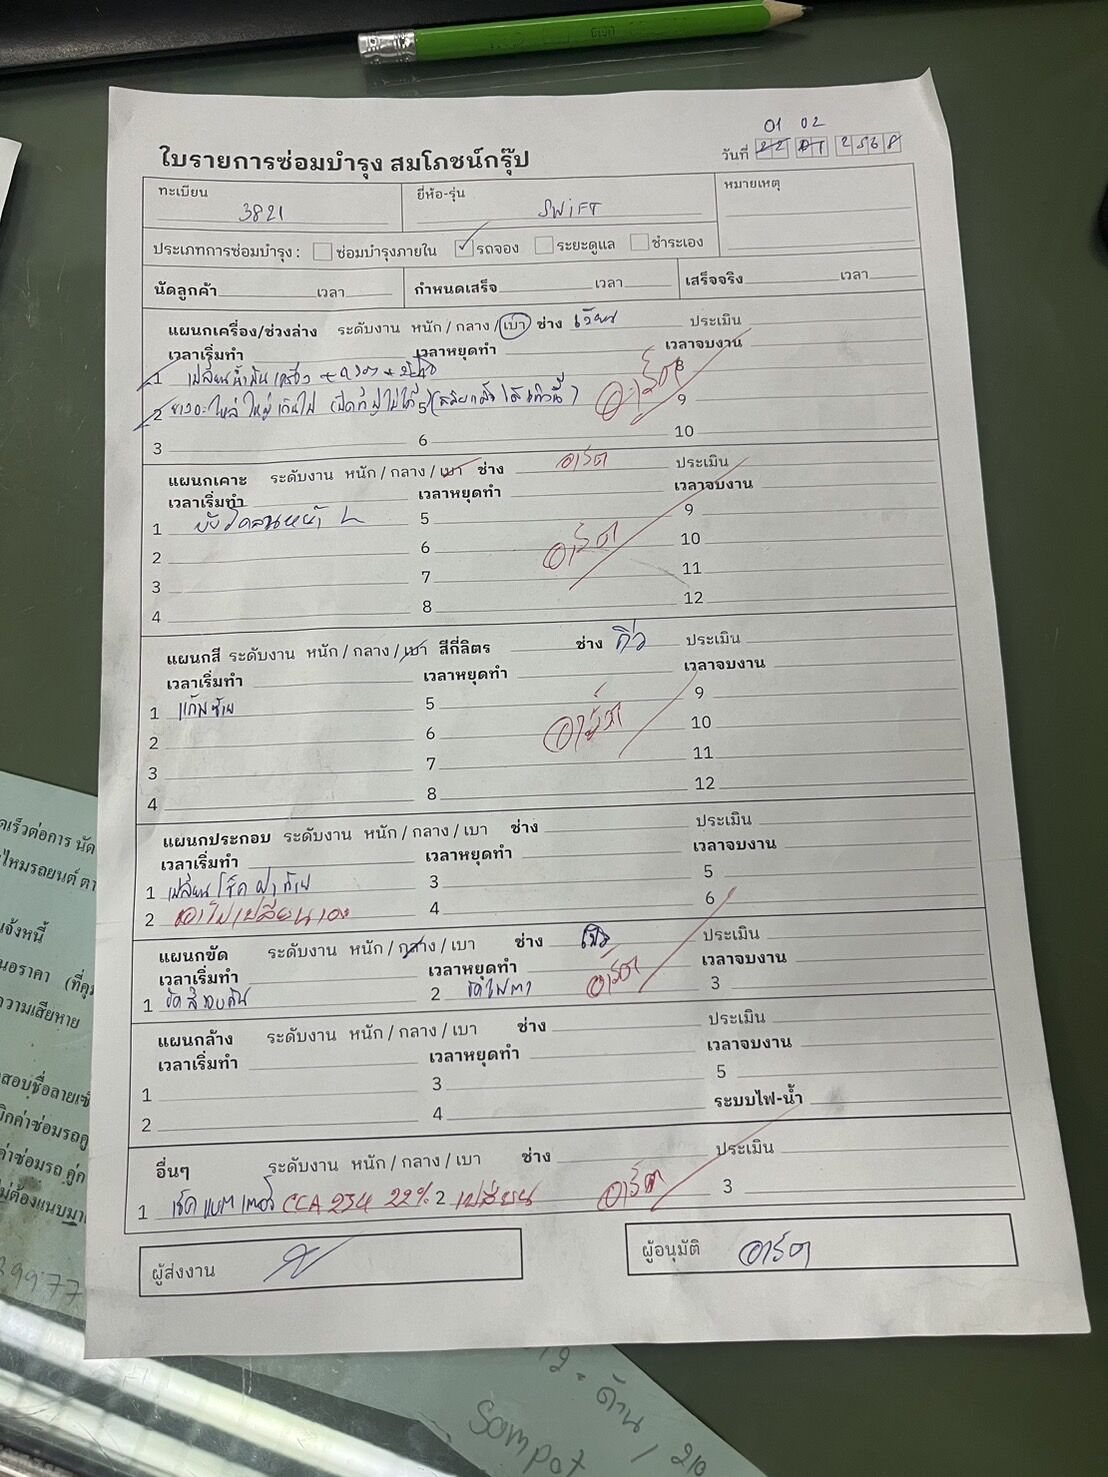 01 02
ใบรายการซ่อมบำรุง สมโภชน์กรุ๊ป
วันที่ 22 01 2568
ทะเบียน 3821
ยี่ห้อ-รุ่น SWIFT
หมายเหตุ
ประเภทการซ่อมบำรุง : ซ่อมบำรุงภายใน รถจอง ระยะดูแล ชำระเอง
นัดลูกค้า เวลา กำหนดเสร็จ เวลา เสร็จจริง เวลา
แผนกเครื่อง/ช่วงล่าง ระดับงาน หนัก / กลาง / เบา ช่าง ประเมิน
เวลาเริ่มทำ เวลาหยุดทำ เวลาจบงาน
1 เปลี่ยนน้ำมันเครื่อง 8
2 ยางอะไหล่ใหญ่เกินไป 5 9
3 6 10
แผนกเคาะ ระดับงาน หนัก / กลาง / เบา ช่าง อาร์ต ประเมิน
เวลาเริ่มทำ เวลาหยุดทำ เวลาจบงาน
1 5 9
2 6 อาร์ต 10
3 7 11
4 8 12
แผนกสี ระดับงาน หนัก / กลาง / เบา สีกี่ลิตร ช่าง คิว ประเมิน
เวลาเริ่มทำ เวลาหยุดทำ เวลาจบงาน
1 แก้มซ้าย 5 9
2 6 อาร์ต 10
3 7 11
4 8 12
แผนกประกอบ ระดับงาน หนัก / กลาง / เบา ช่าง ประเมิน
เวลาเริ่มทำ เวลาหยุดทำ เวลาจบงาน
1 เปลี่ยนโช็คฝาท้าย 3 5
2 เอาไปเปลี่ยนเอง 4 6
แผนกขัด ระดับงาน หนัก / กลาง / เบา ช่าง ประเมิน
เวลาเริ่มทำ เวลาหยุดทำ อาร์ต เวลาจบงาน
1 ขัดสีรอบคัน 2 ขัดไฟตา 3
แผนกล้าง ระดับงาน หนัก / กลาง / เบา ช่าง ประเมิน
เวลาเริ่มทำ เวลาหยุดทำ เวลาจบงาน
1 3 5
2 4 ระบบไฟ-น้ำ
อื่นๆ ระดับงาน หนัก / กลาง / เบา ช่าง ประเมิน
1 เช็คแบตเตอรี่ CCA 234 22% 2 เปลี่ยน อาร์ต 3
ผู้ส่งงาน
ผู้อนุมัติ อาร์ต
นอราคา
ความเสียหาย
39977
Sompot